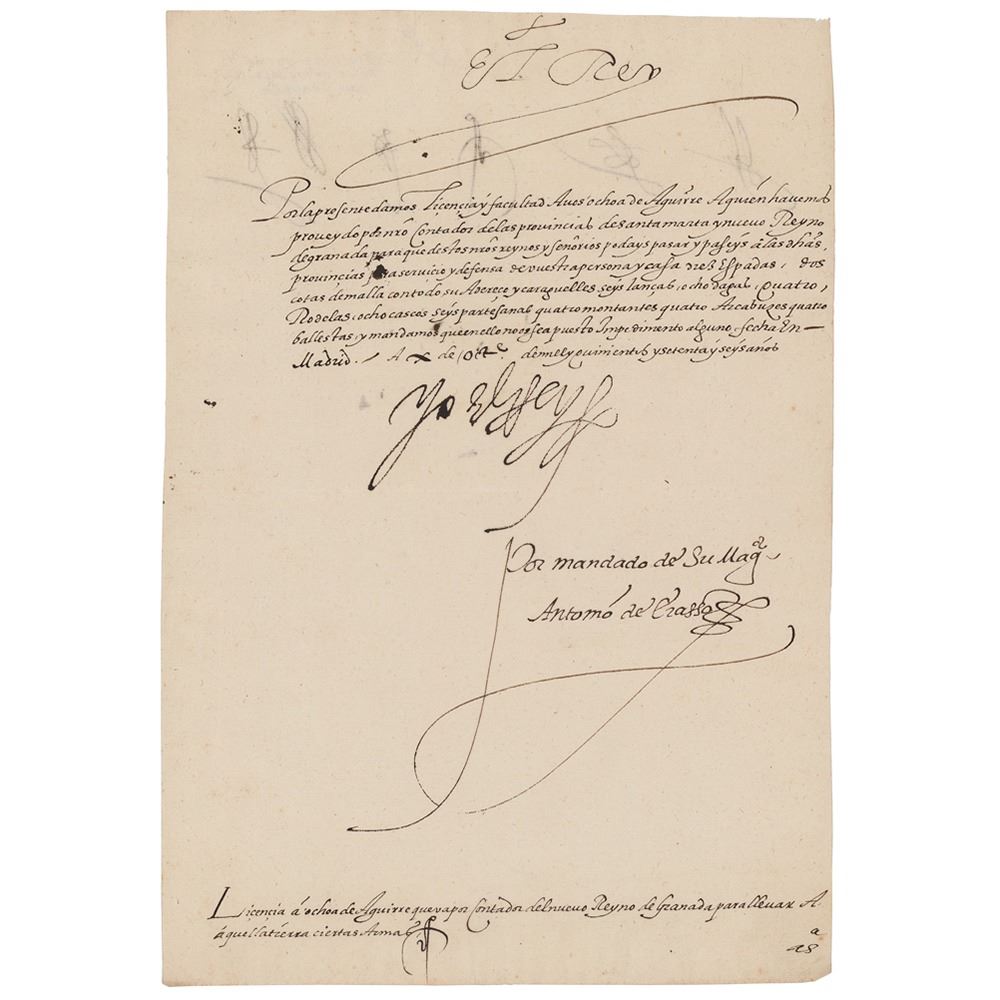 El Rey
Por la presente damos Licencia y facultad A vos ochoa de Aguirre A quien havemos
proveydo por nro Contador de las provincias de santa marta y nuevo Reyno
de granada para que destos nros reynos y señorios podays pasar y paseys à las dhas
provincias para servicio y defensa de vuestra persona y casa diez Espadas, dos
cotas de malla con todo su Aderezo y caraguelles, seys lanças, ocho dagas, quatro
Rodelas, ocho cascos seys partesanas quatro montantes quatro Arcabuzes quatro
ballestas, y mandamos que en ello no os sea puesto Impedimento alguno fecha En
Madrid. A x de otre de mil y quinientos y setenta y seys años
Yo El Rey
Por mandado de Su Magd
Antonio de Erasso
Licencia á ochoa de Aguirre que va por Contador del nuevo Reyno de Granada para llevar A
aquella tierra ciertas Armas